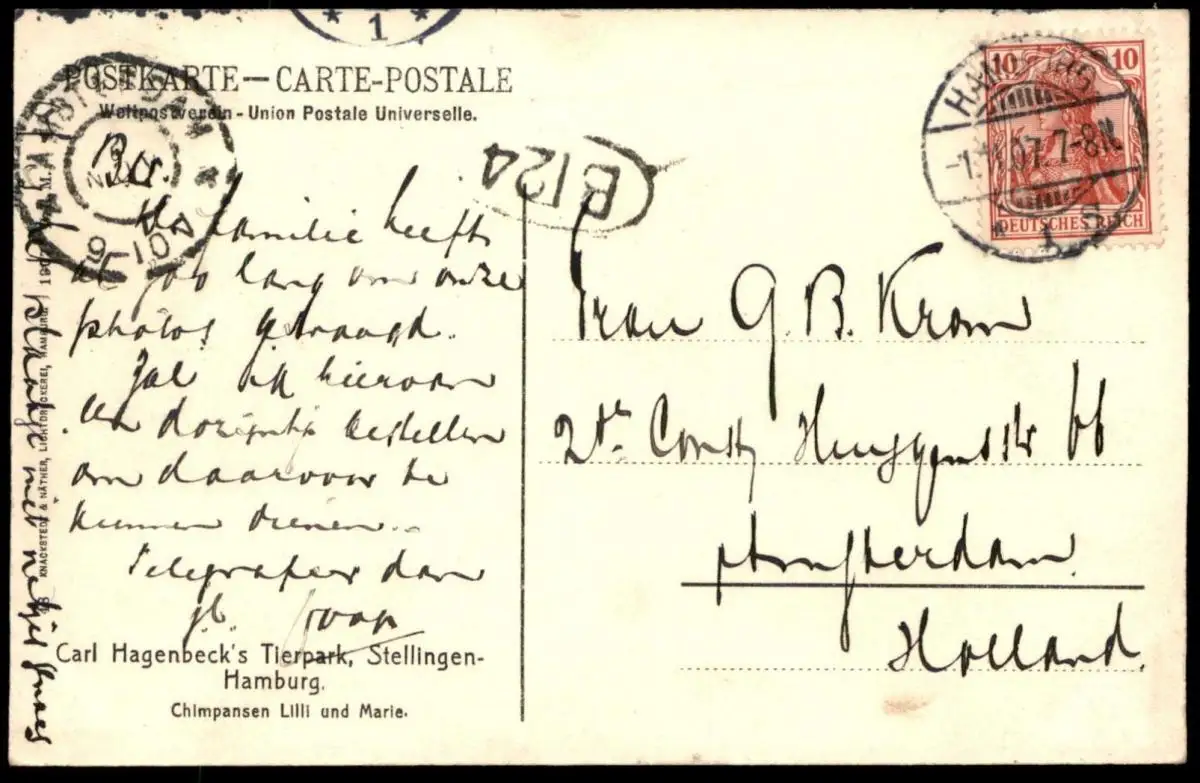 POSTKARTE — CARTE-POSTALE
Weltpostverein - Union Postale Universelle.
1
AMSTERDAM
9-10V
B124
HAMBURG
-1.11.07. 7-8N.
* 1 d
10 10
DEUTSCHES REICH
familie heeft
al zoo lang om onze
photos gevraagd.
Zal ik hiervan
een dozijntje bestellen
om daarvoor te
kunnen dienen..
Telegrafeer dan
Joop
Frau G. B. Kram
2de Const Huygensstr 66
Amsterdam
Holland.
KNACKSTEDT & NÄTHER, LICHTDRUCKEREI, HAMBURG
met netjes
Carl Hagenbeck's Tierpark, Stellingen-
Hamburg.
Chimpansen Lilli und Marie.